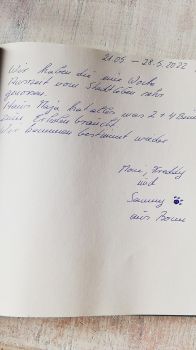 21.05 - 28.5.2022
Wir haben die eine Woche
Auszeit vom Stadtleben sehr
genossen.
Haus Maja hat alles was 2 + 4 Beine
zum Erholen braucht.
Wir kommen bestimmt wieder
Moni, Freddy
und
Sammy
aus Bonn